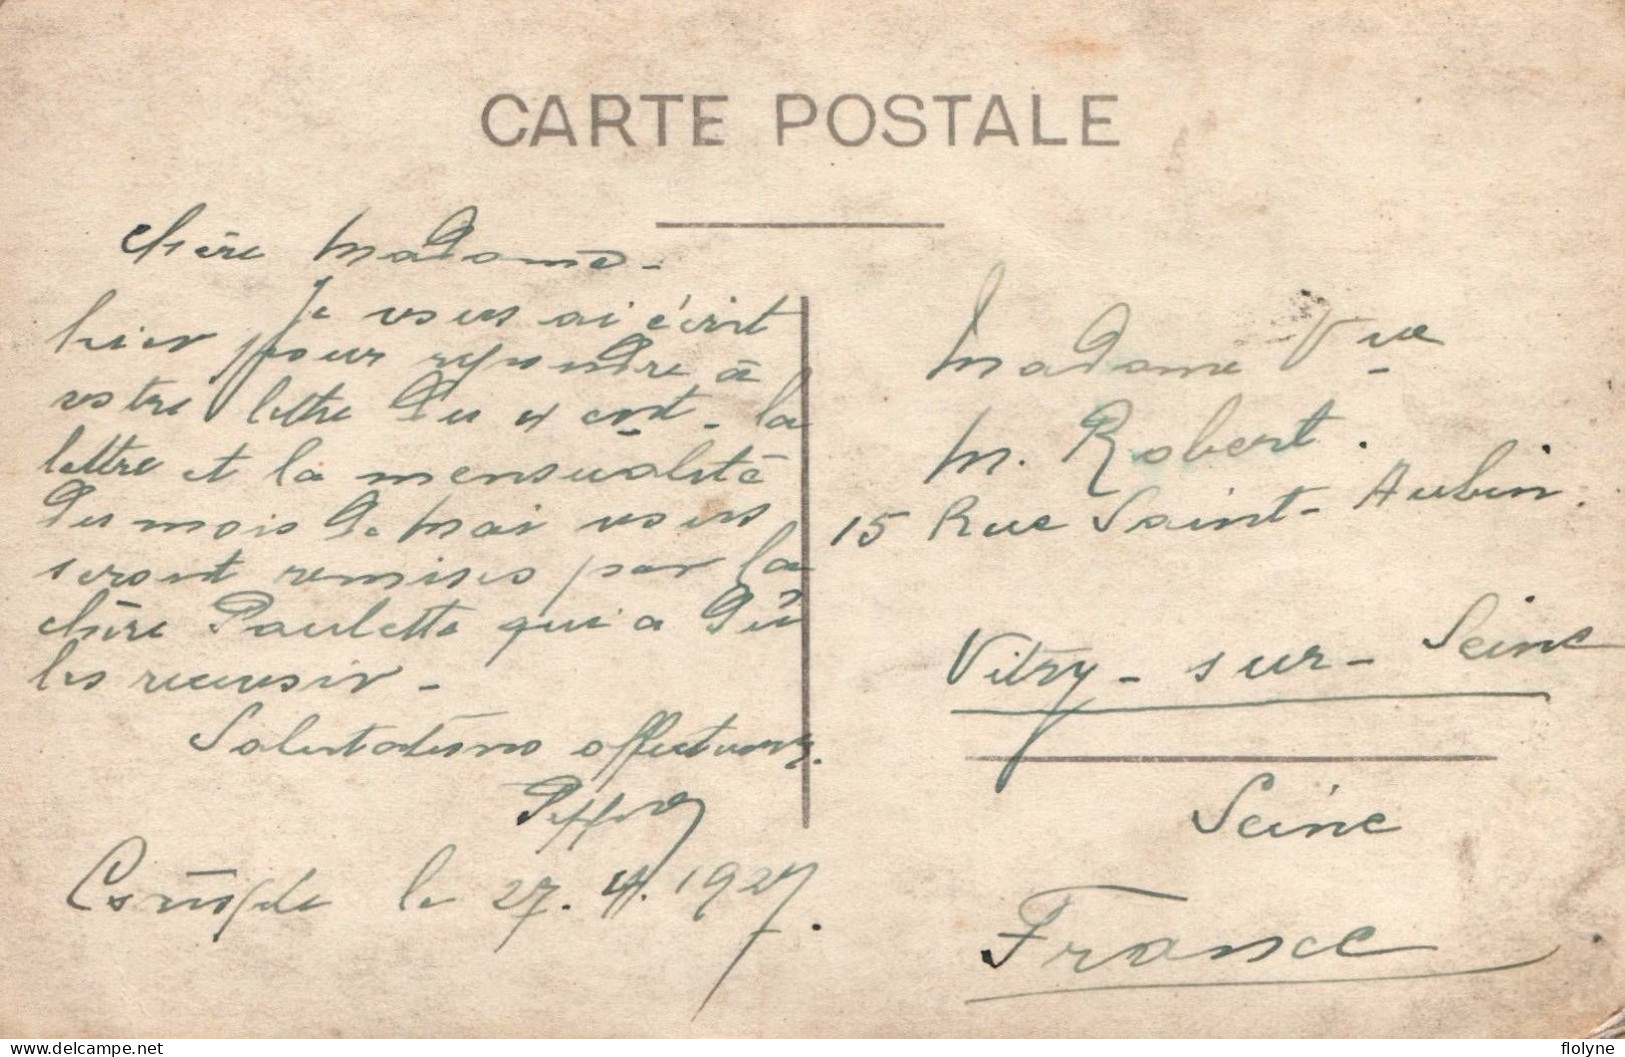 CARTE POSTALE
Chère Madame -
Je vous ai écrit
hier pour répondre à
votre lettre du 4 cnt - la
lettre et la mensualité
du mois de Mai vous
seront remises par la
chère Paulette qui a dû
les recevoir -
Salutations affectueuses.
le 27. 4. 1927.
Madame Vve
M. Robert.
15 Rue Saint-Aubin.
Vitry-sur-Seine
Seine
France
delcampe.net
flolyne